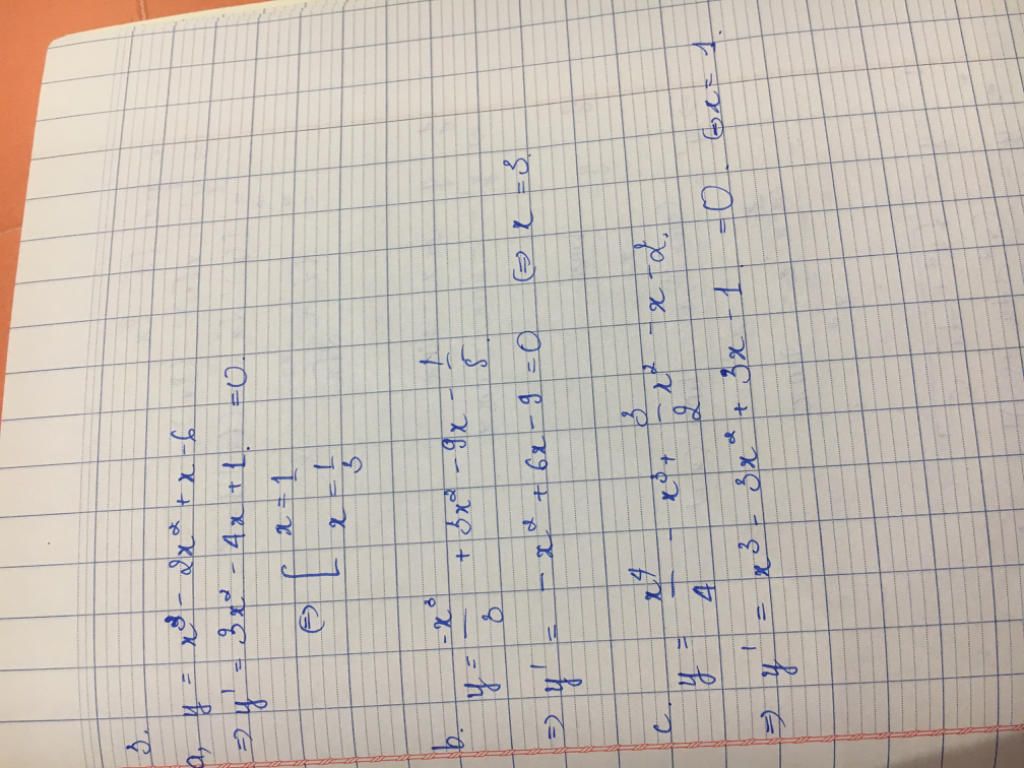 3.
a, y = x³ - 2x² + x - 6
=> y' = 3x² - 4x + 1 = 0.
(=) [ x = 1
x = 1/3
b. y = -x³/3 + 3x² - 9x - 1/5
=> y' = - x² + 6x - 9 = 0 (=) x = 3.
c. y = x⁴/4 - x³ + 3/2 x² - x - 2.
=> y' = x³ - 3x² + 3x - 1 = 0. (=) x = 1.